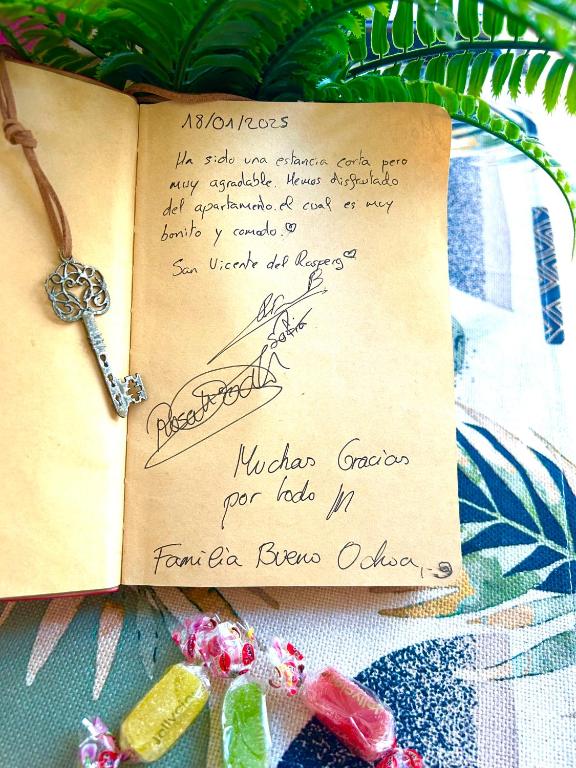 18/01/2025
Ha sido una estancia corta pero
muy agradable. Hemos disfrutado
del apartameno. el cual es muy
bonito y comodo.
San Vicente del Raspeig
Sofia
Muchas Gracias
por todo
Familia Bueno Ochoa